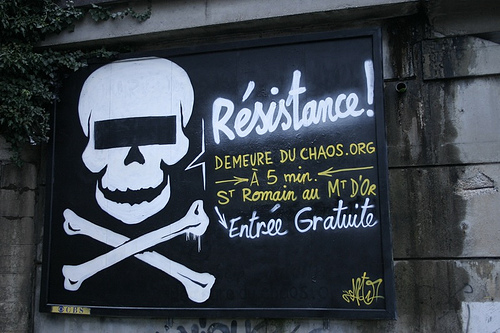 Résistance!
DEMEURE DU CHAOS.ORG
À 5 min.
ST Romain au MT D'Or
Entrée Gratuite